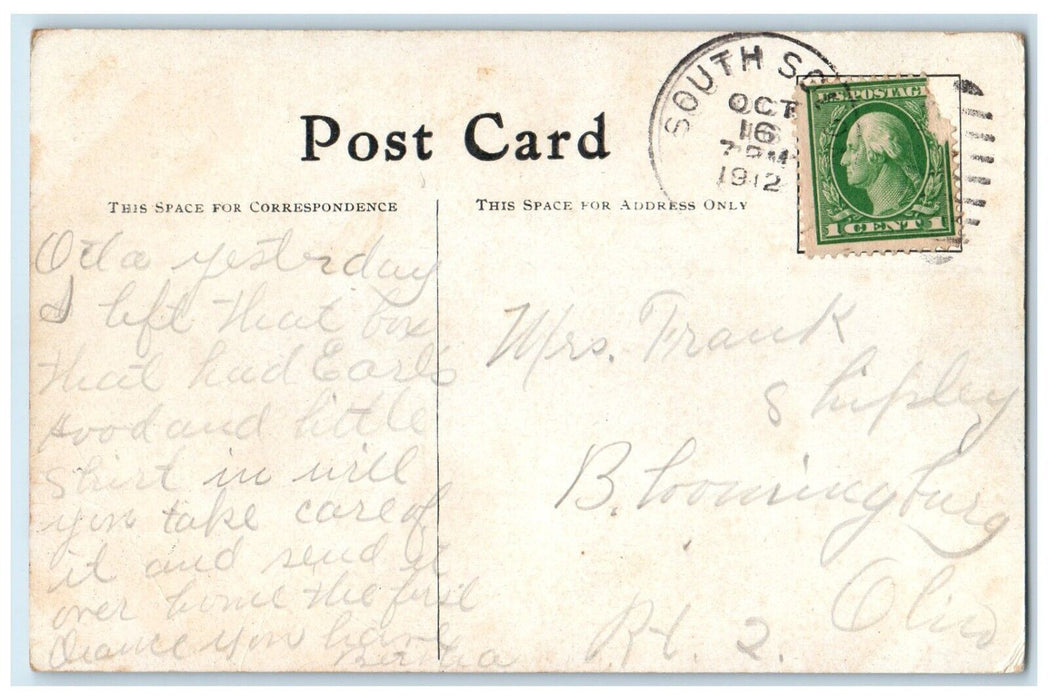 Post Card
THIS SPACE FOR CORRESPONDENCE
THIS SPACE FOR ADDRESS ONLY
SOUTH SO
OCT
16
7 PM
1912
U.S. POSTAG
1 CENT 1
yesterday
I left that box
that had Earls
hood and little
shirt in will
you take care of
it and send it
over home the first
chance you have
Bertha
Mrs. Frank
Shipley
Bloomingburg
Ohio
Rt. 2.